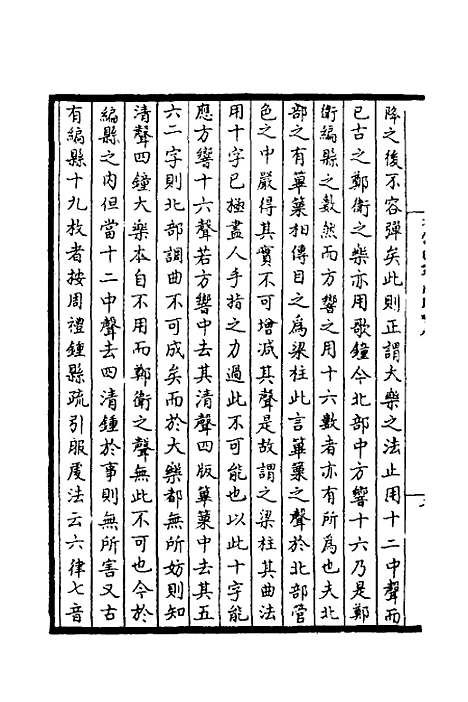 降之後不容彈矣此則正謂大樂之法止用十二中聲而
已古之鄭衛之樂亦用歌鐘今北部中方響十六乃是鄭
衛編縣之數然而方響之用十六數者亦有所為也夫北
部之有篳篥相傳目之為梁柱此言篳篥之聲於北部管
色之中嚴得其實不可增減其聲是故謂之梁柱其曲法
用十字已極盡人手指之力過此不可能也以此十字能
應方響十六聲若方響中去其清聲四版篳篥中去其五
六二字則北部調曲不可成矣而於大樂都無所妨則知
清聲四鐘大樂本自不用而鄭衛之聲無此不可也今於
編縣之內但當十二中聲去四清鍾於事則無所害又古
有編縣十九枚者按周禮鍾縣疏引服虔法云六律七音